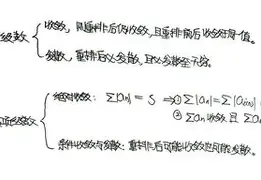 级数
收敛，则重排后仍收敛，且重排前后收敛于同一值。
发散，重排后必发散，且必发散至不变。
项级数
绝对收敛：∑|aₙ| = S ⇒ ① ∑|aₙ| = ∑|
② ∑aₙ 收敛且 ∑
条件收敛与发散：重排后可能收敛也可能发散。